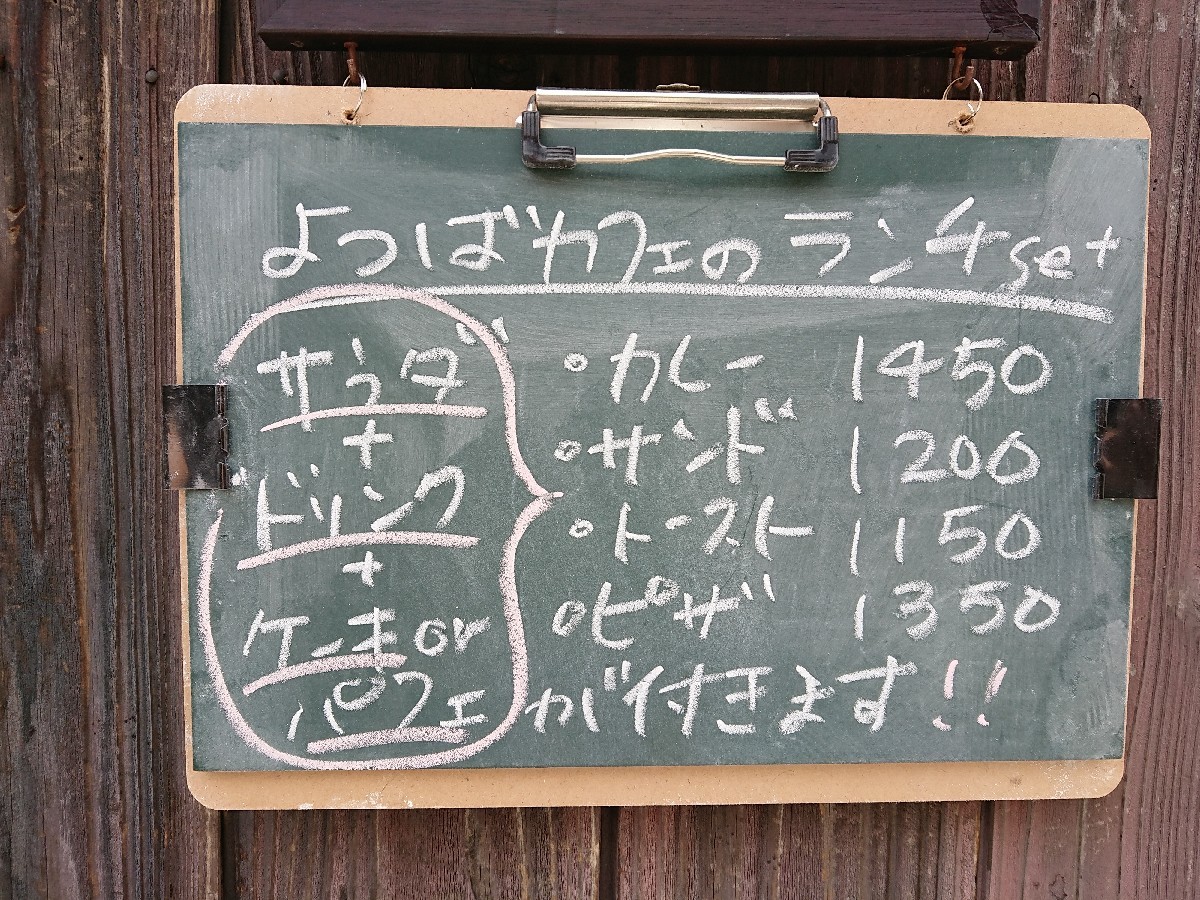 よつばカフェのランチset
サラダ
+
ドリンク
+
ケーキor
パフェ
・カレー 1450
・サンド 1200
・トースト 1150
・ピザ 1350
が付きます!!